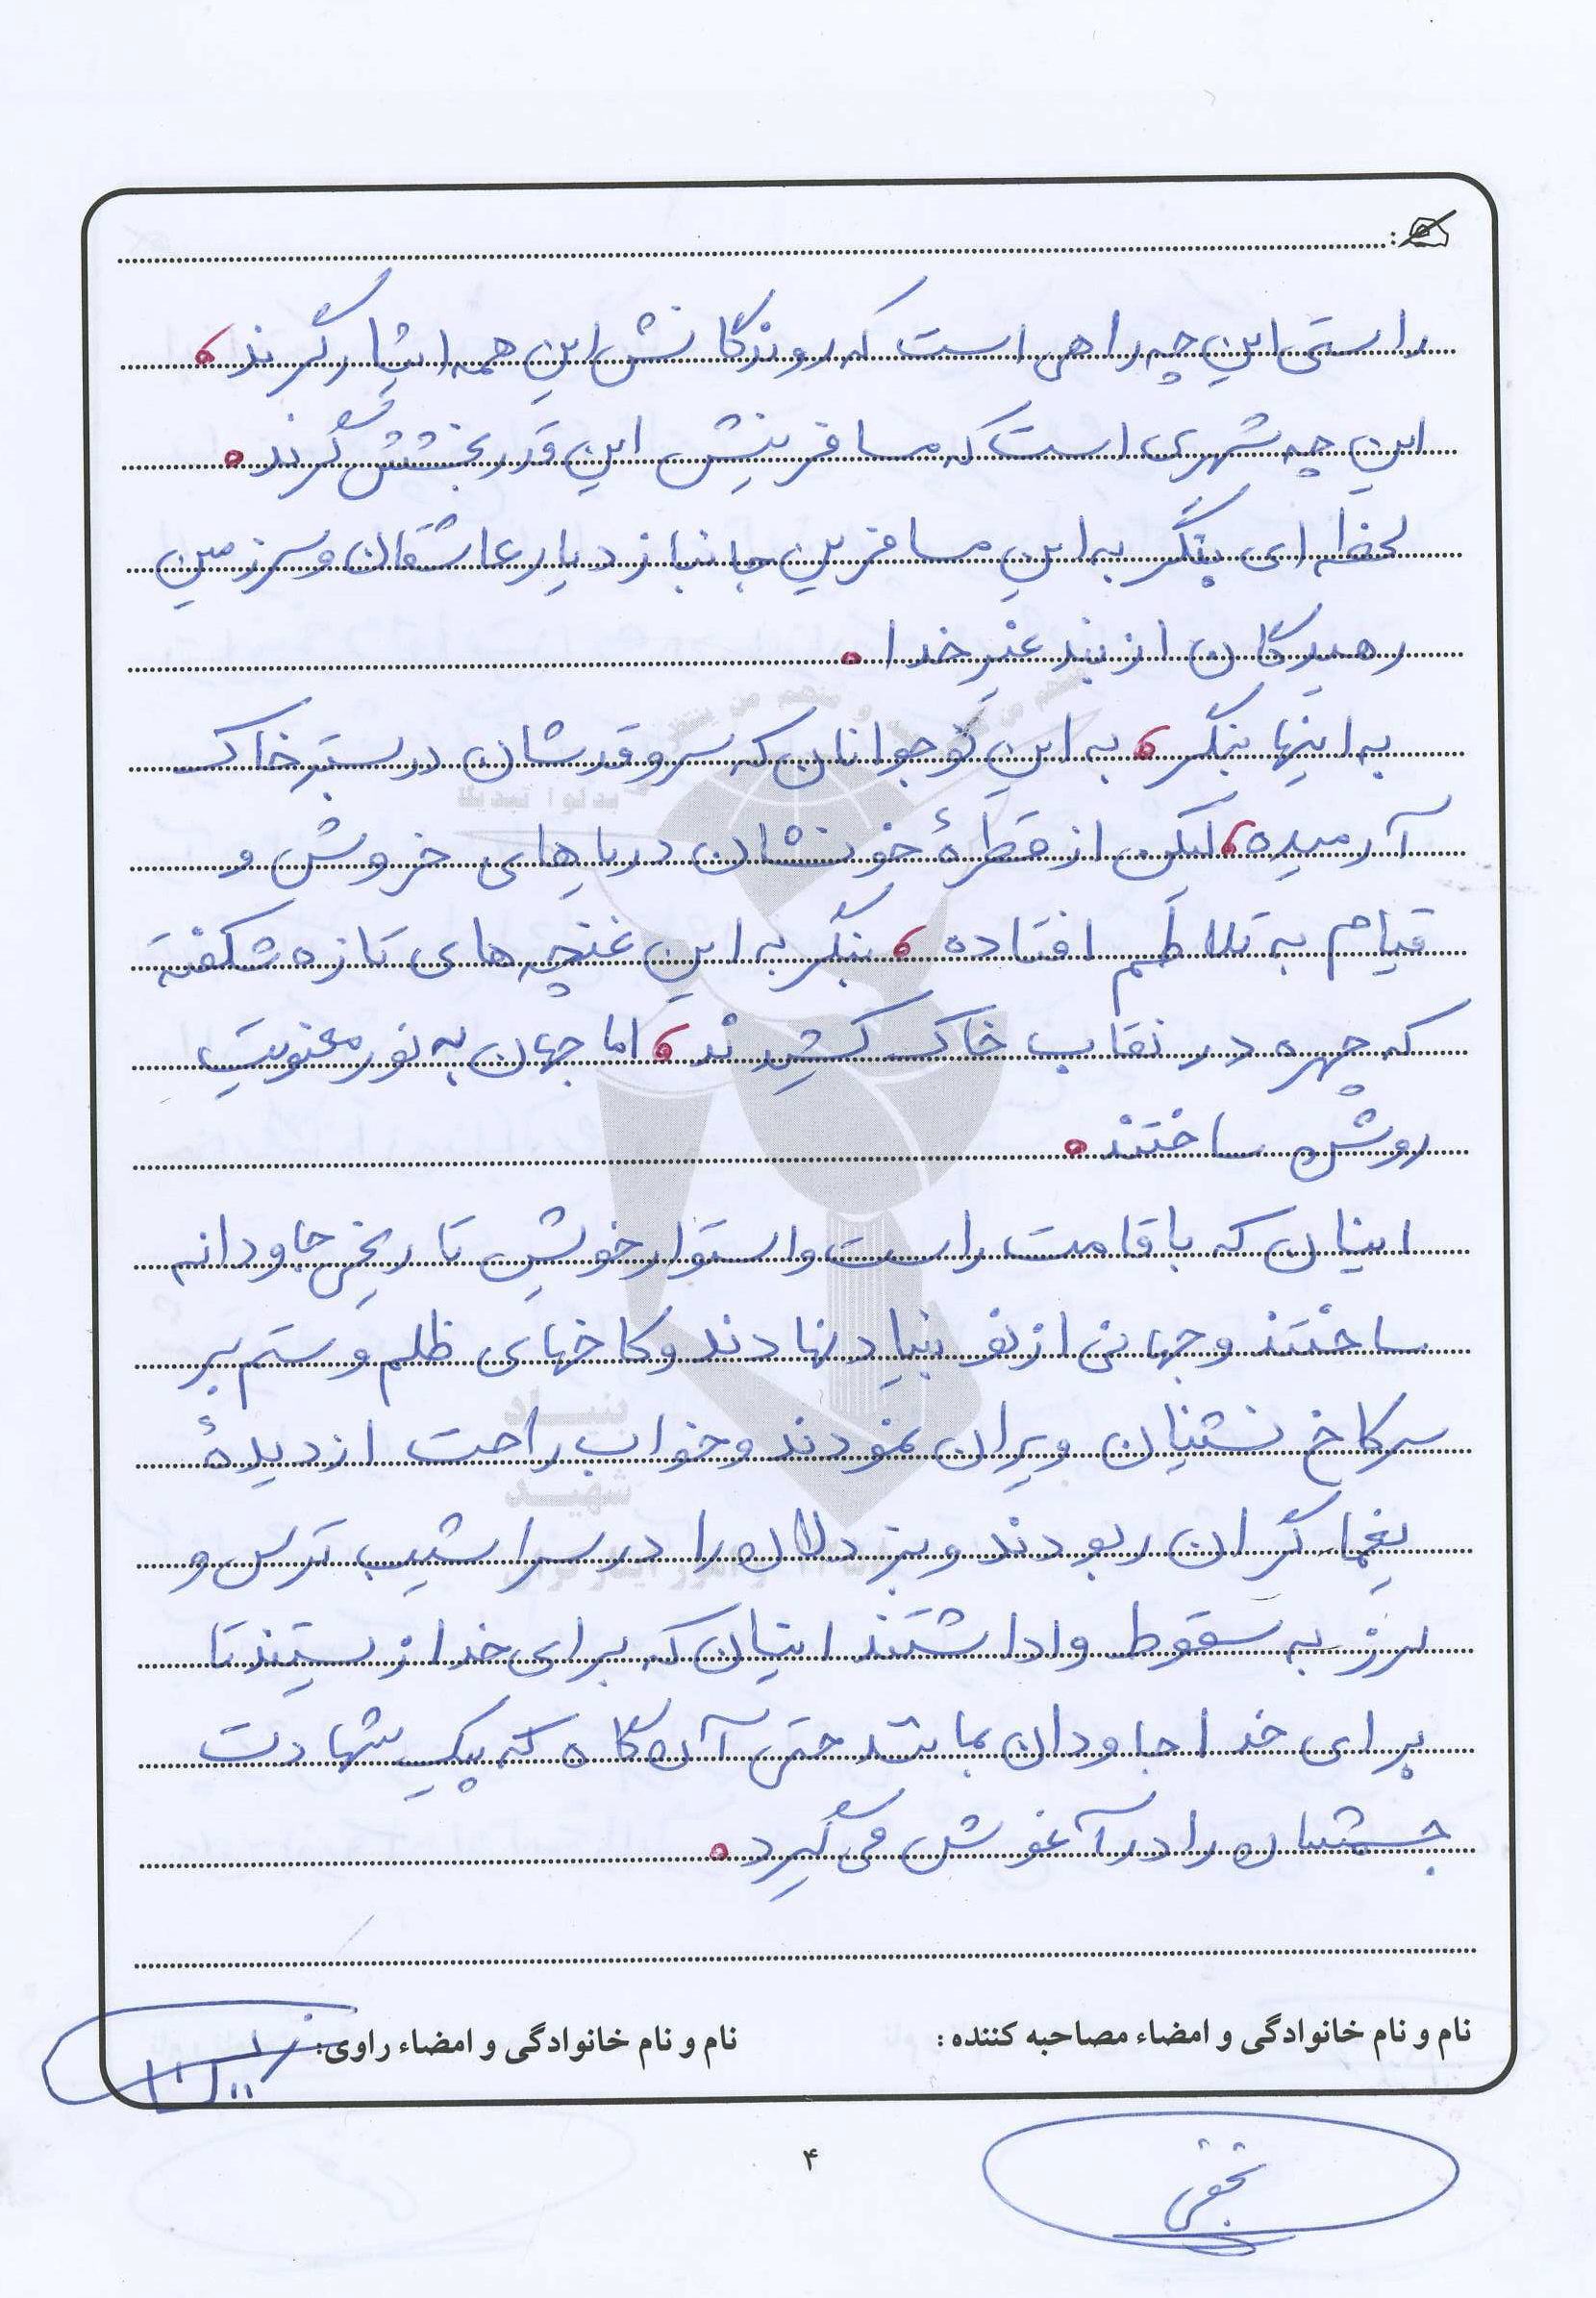 راستی این چه راهی است که روندگانش این همه ایثارگرند،
این چه شهری است که مسافرینش این قدر بخشش گرند.
لحظه ای بنگر به این مسافرین جانباز دیار عاشقان و سرزمین
رهیدگان از بند غیر خدا.
به اینها بنگر، به این نوجوانان که سرو قدشان در بستر خاک
آرمیده، لیکن از قطرهٔ خونشان دریاهای خروش و
قیام به تلاطم افتاده، بنگر به این غنچه های تازه شکفته
که چهره در نقاب خاک کشیدند، اما جهان به نور معنویت
روشن ساختند.
اینان که با قامت راست و استوار خویش تاریخی جاودانه
ساختند و جهانی از نو بنیاد نهادند و کاخهای ظلم و ستم بر
سر کاخ نشینان ویران نمودند و خواب راحت از دیدهٔ
یغماگران ربودند و بزدلان را در سراشیب ترس و
لرز به سقوط واداشتند اینان که برای خدا زیستند تا
برای خدا جاودان بمانند حتی آن گاه که پیک شهادت
جسمشان را در آغوش می گیرد.
نام و نام خانوادگی و امضاء مصاحبه کننده :
نام و نام خانوادگی و امضاء راوی:
۴
بنیاد
شهید